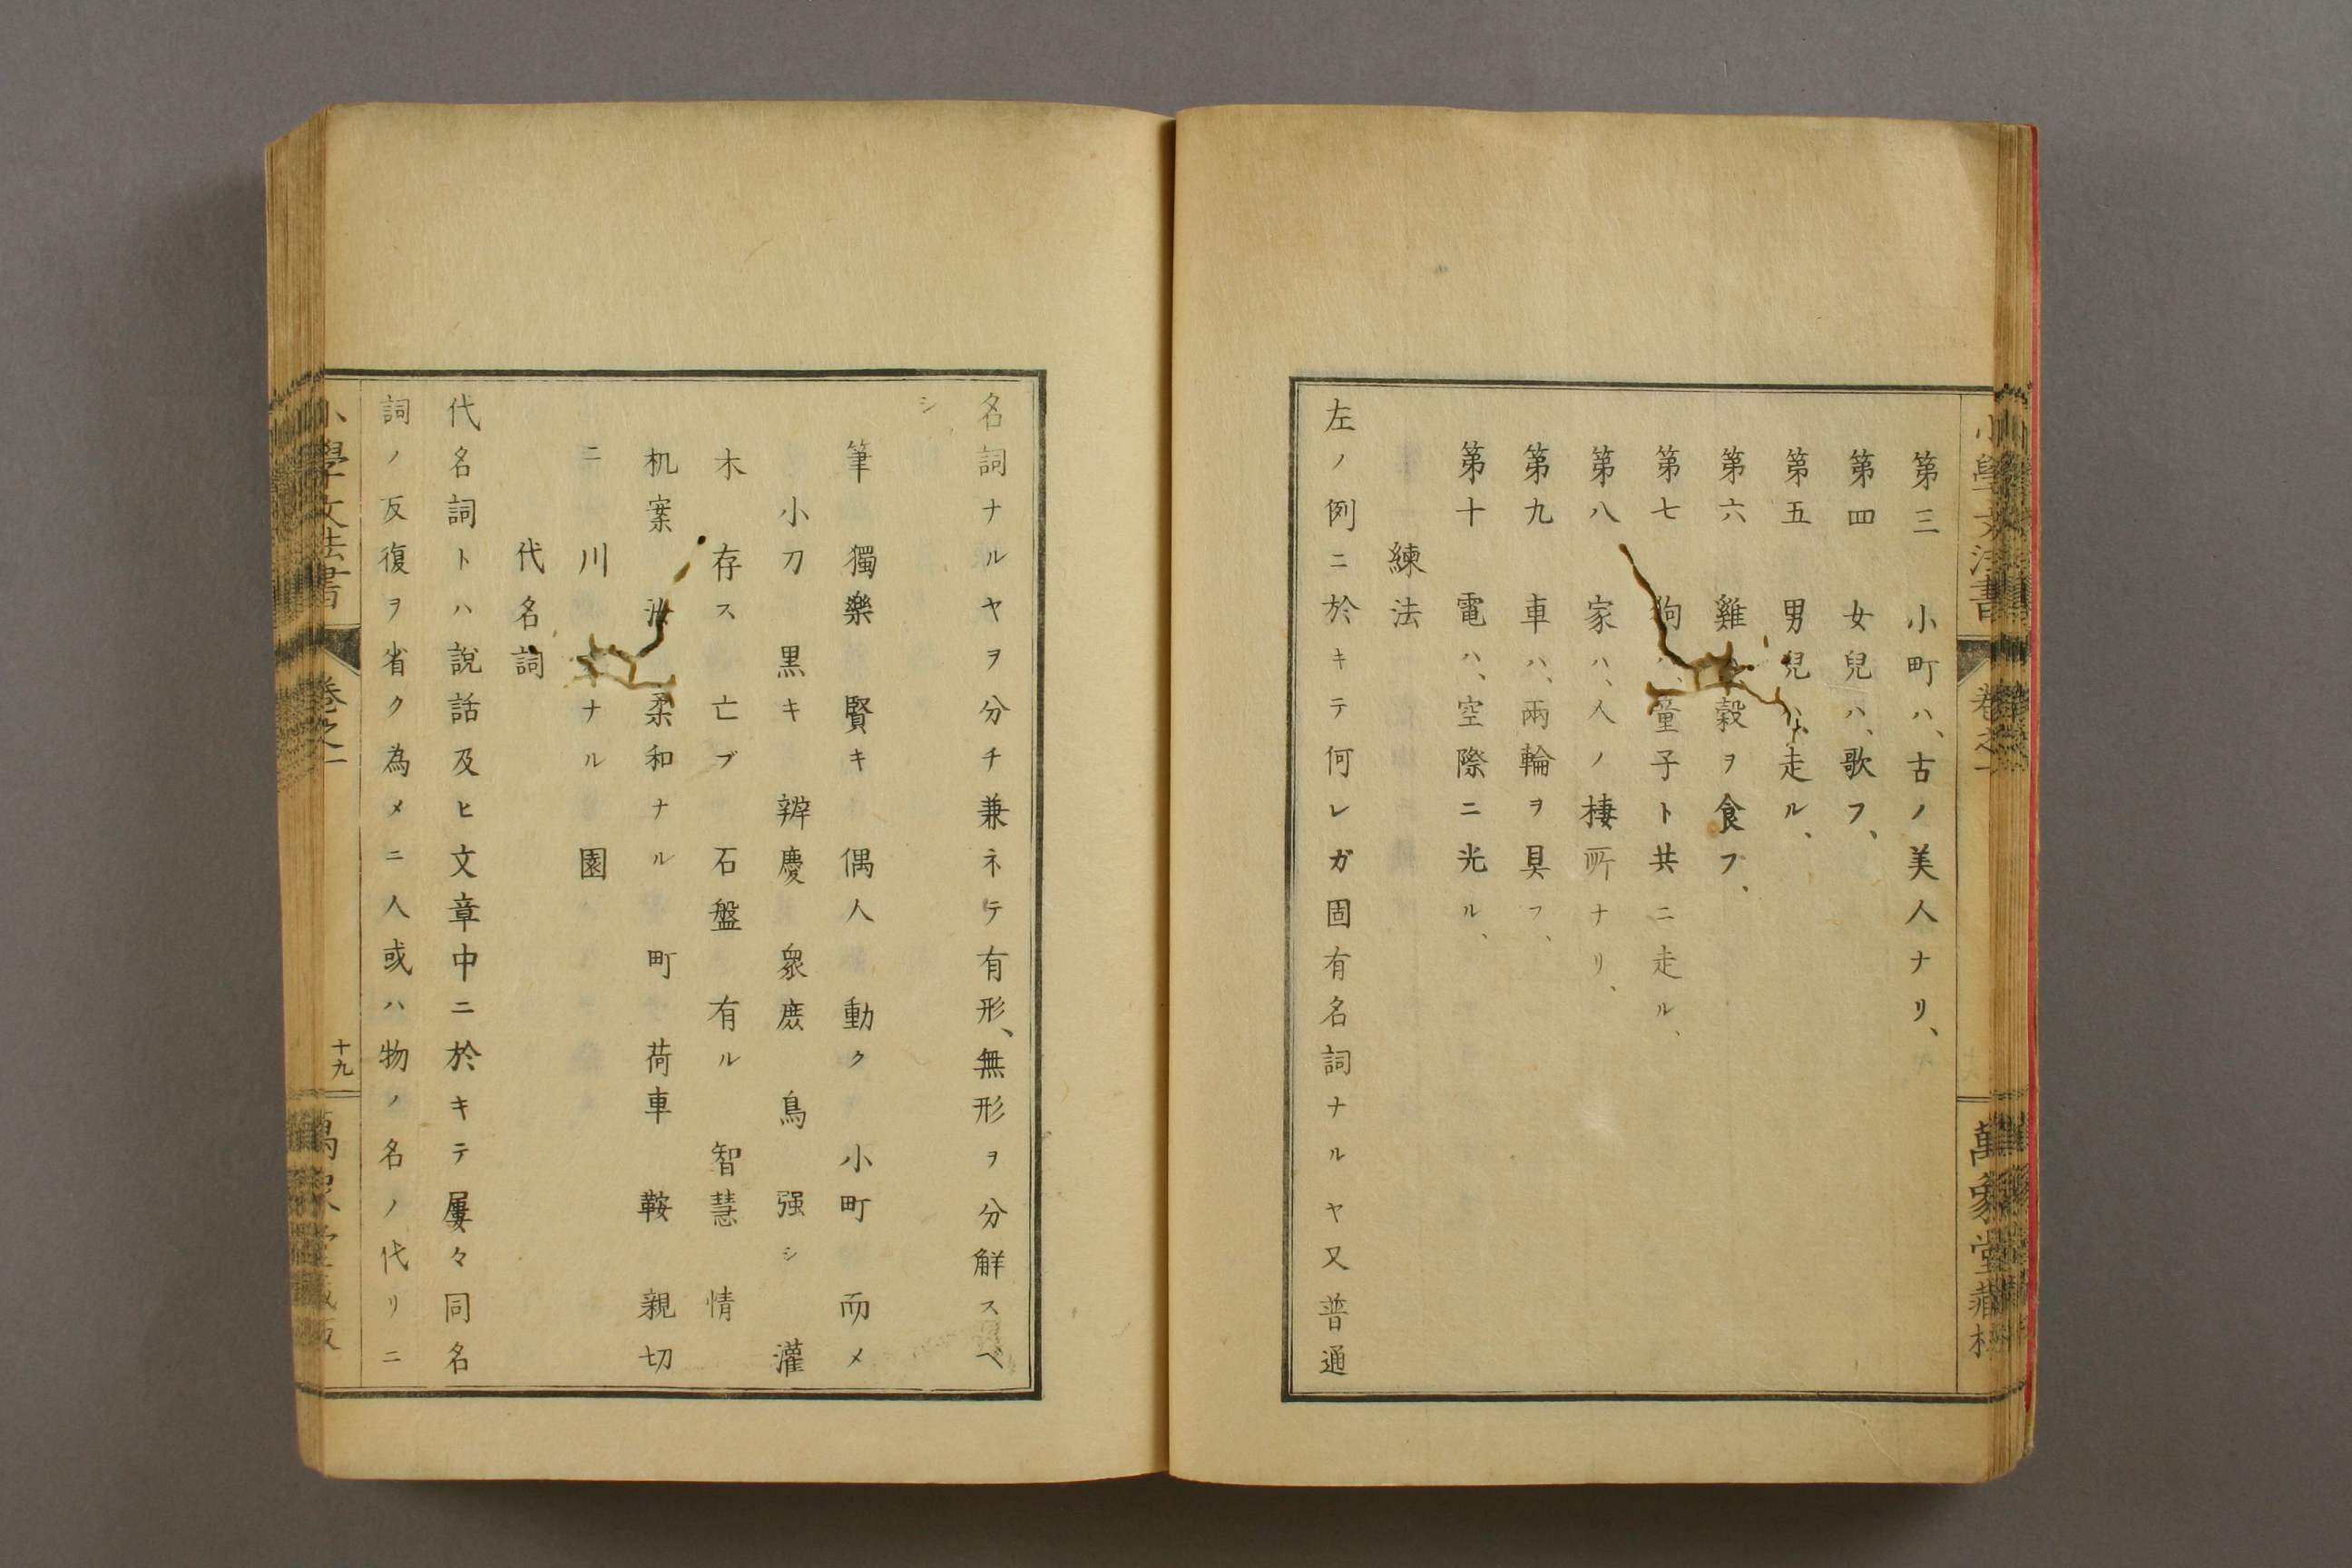 小學文法書
卷之一
萬象堂藏
第三　小町ハ、古ノ美人ナリ、
第四　女兒ハ、歌フ、
第五　男兒ハ、走ル、
第六　雞　穀ヲ食フ、
第七　狗ハ、童子ト共ニ走ル、
第八　家ハ、人ノ棲所ナリ、
第九　車ハ、兩輪ヲ具フ、
第十　電ハ、空際ニ光ル、
練法
左ノ例ニ於キテ何レガ固有名詞ナルヤ又普通
名詞ナルヤヲ分チ兼ネテ有形、無形ヲ分解スベ
シ
筆　獨樂　賢キ　偶人　動ク　小町　而メ
小刀　黒キ　辨慶　衆庶　鳥　强シ　灌
木　存ス　亡ブ　石盤　有ル　智慧　情
机案　柔和ナル　町　荷車　鞍　親切
ニ　川　ナル　園
代名詞
代名詞トハ說話及ヒ文章中ニ於キテ屢々同名
詞ノ反復ヲ省ク為メニ人或ハ物ノ名ノ代リニ
小學文法書
卷之一
十九
萬象堂藏版